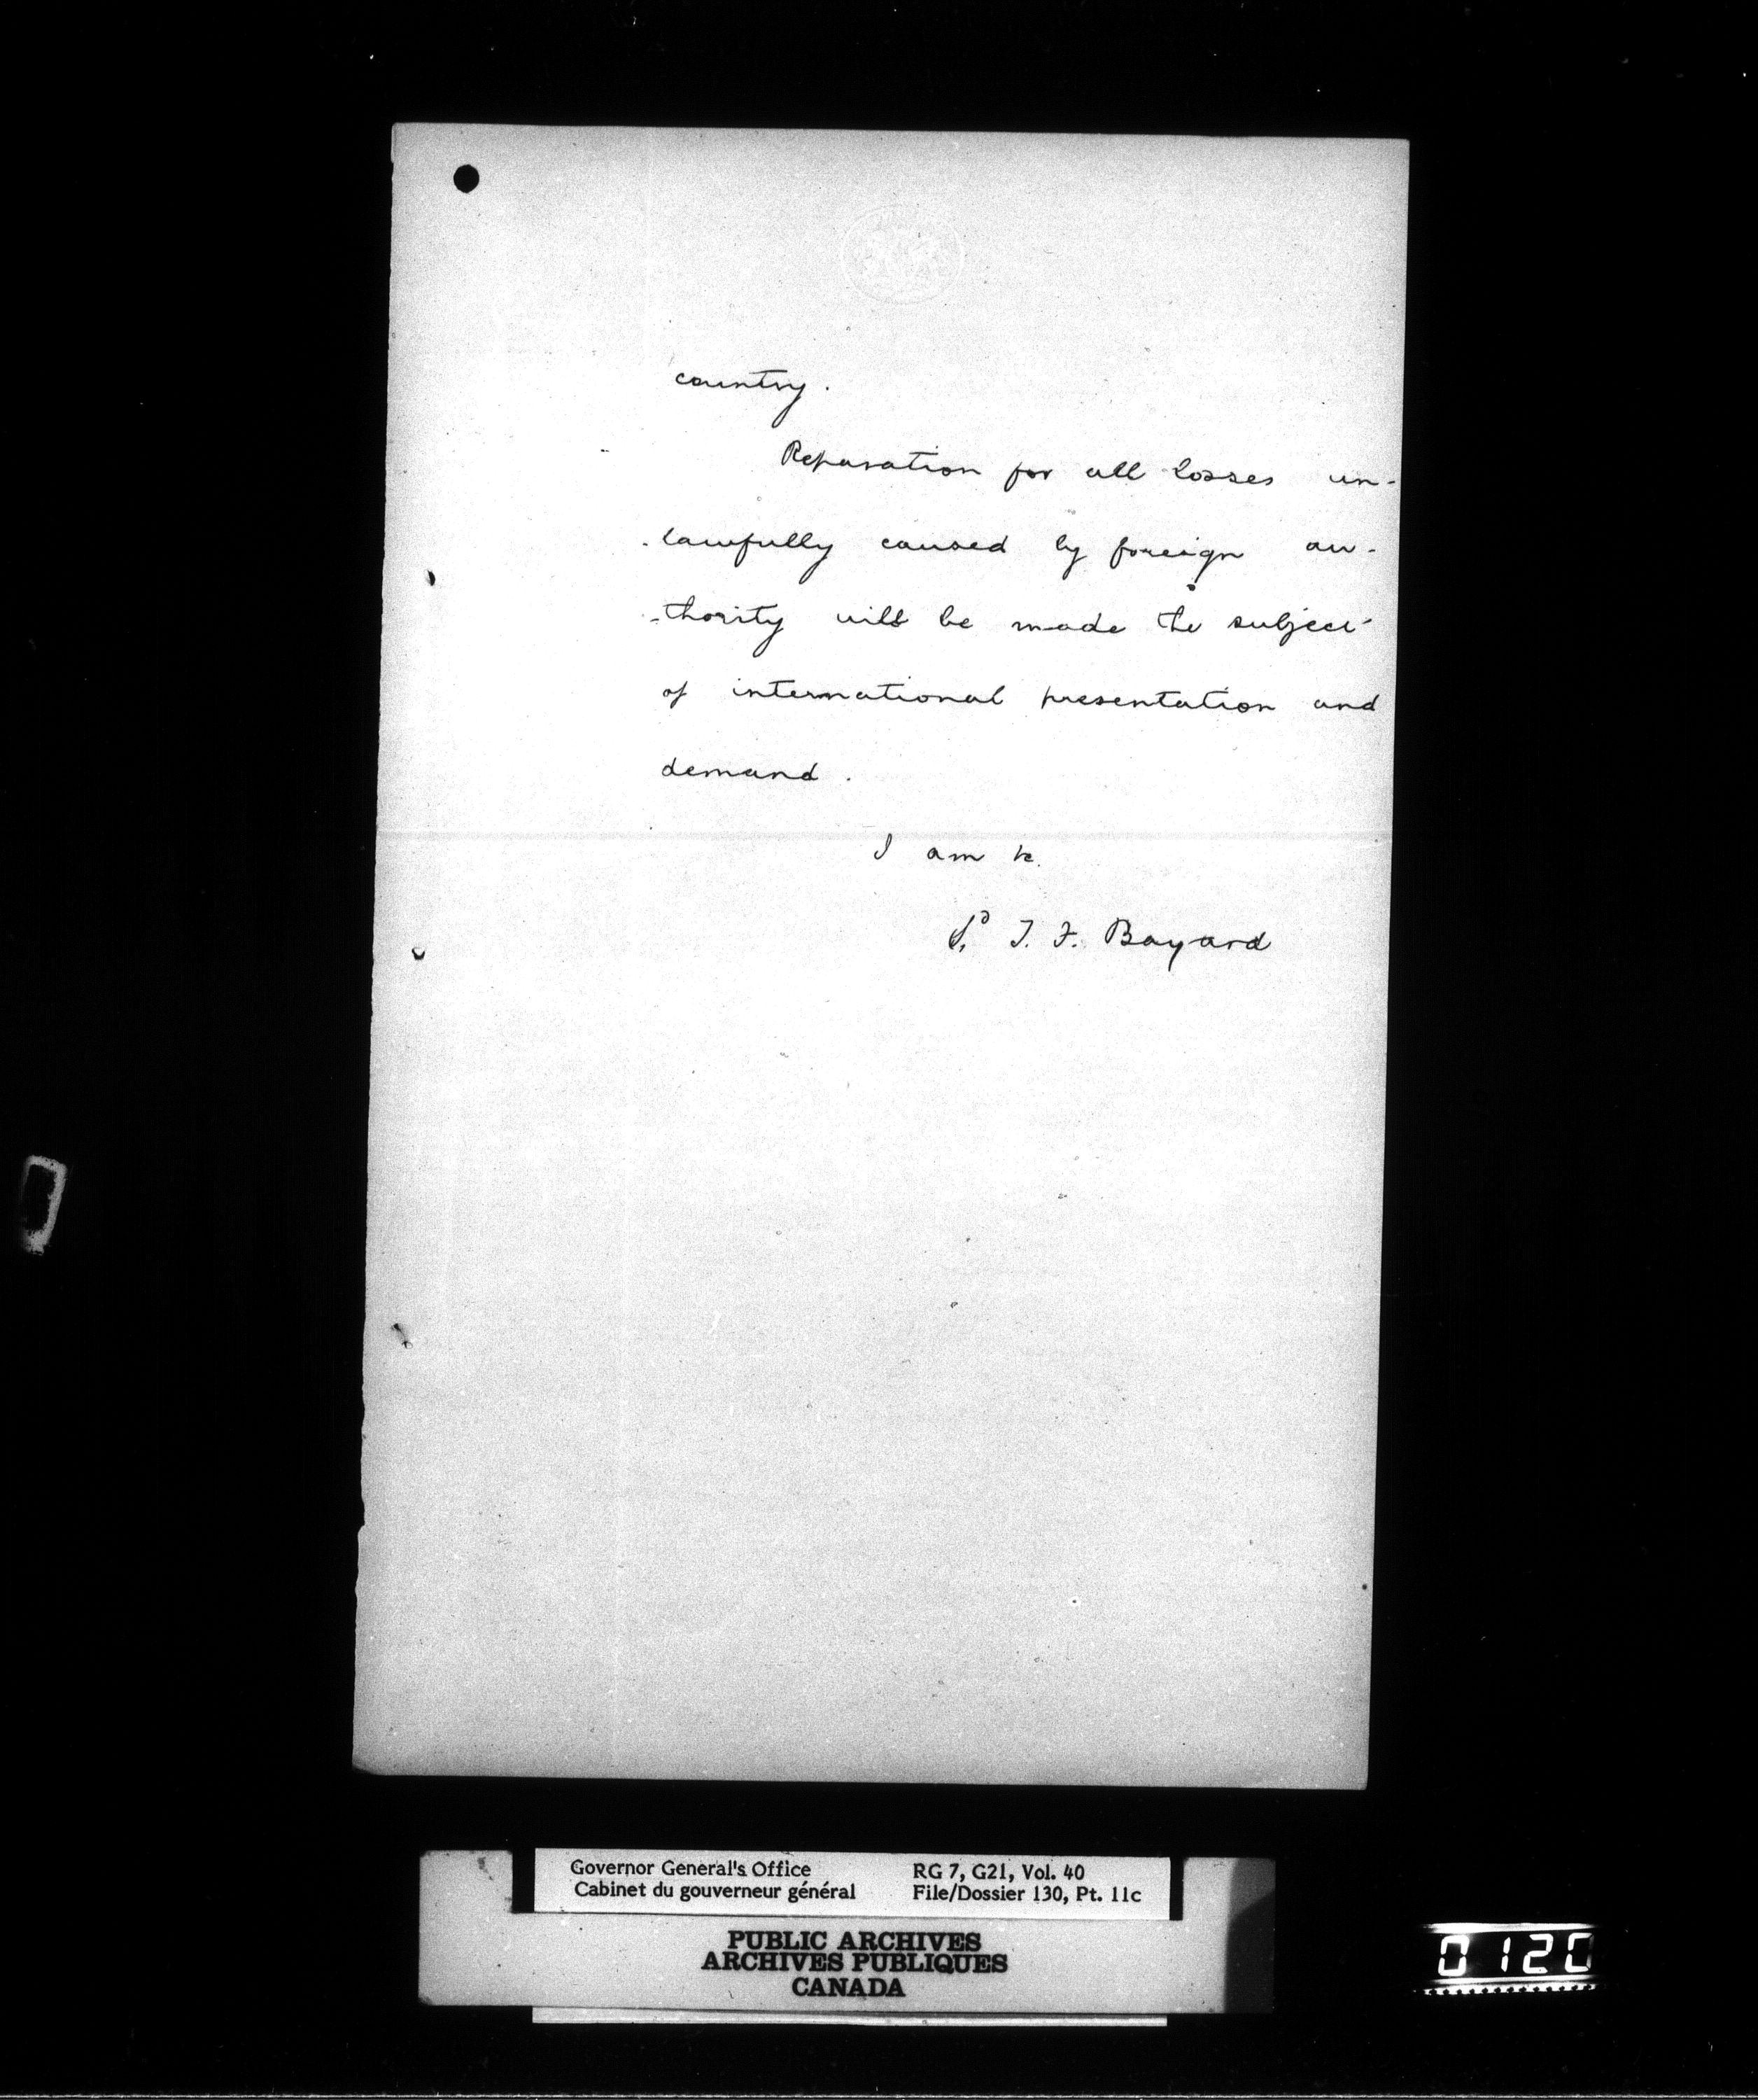 country.
Reparation for all losses un-
-lawfully caused by foreign au-
-thority will be made the subject
of international presentation and
demand.
I am &c.
Sd T. F. Bayard
Governor General's Office
Cabinet du gouverneur général
RG 7, G21, Vol. 40
File/Dossier 130, Pt. 11c
PUBLIC ARCHIVES
ARCHIVES PUBLIQUES
CANADA
0120